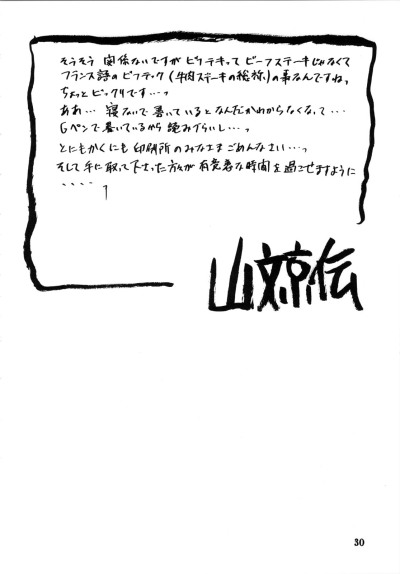 そうそう 関係ないですが ビフテキって ビーフステーキじゃなくて
フランス語の ビフテック (牛肉ステーキの総称)の事なんですねっ
ちょっと ビックリです…っ
ああ… 寝ないで 書いていると なんだかわからなくなって…
Gペンで書いているから 読みづらいし…っ
とにもかくにも 印刷所のみなさまごめんなさい…っ
そして手に取って下さった方々が 有意義な時間を過ごせますように
・・・・っ
山文京伝
30